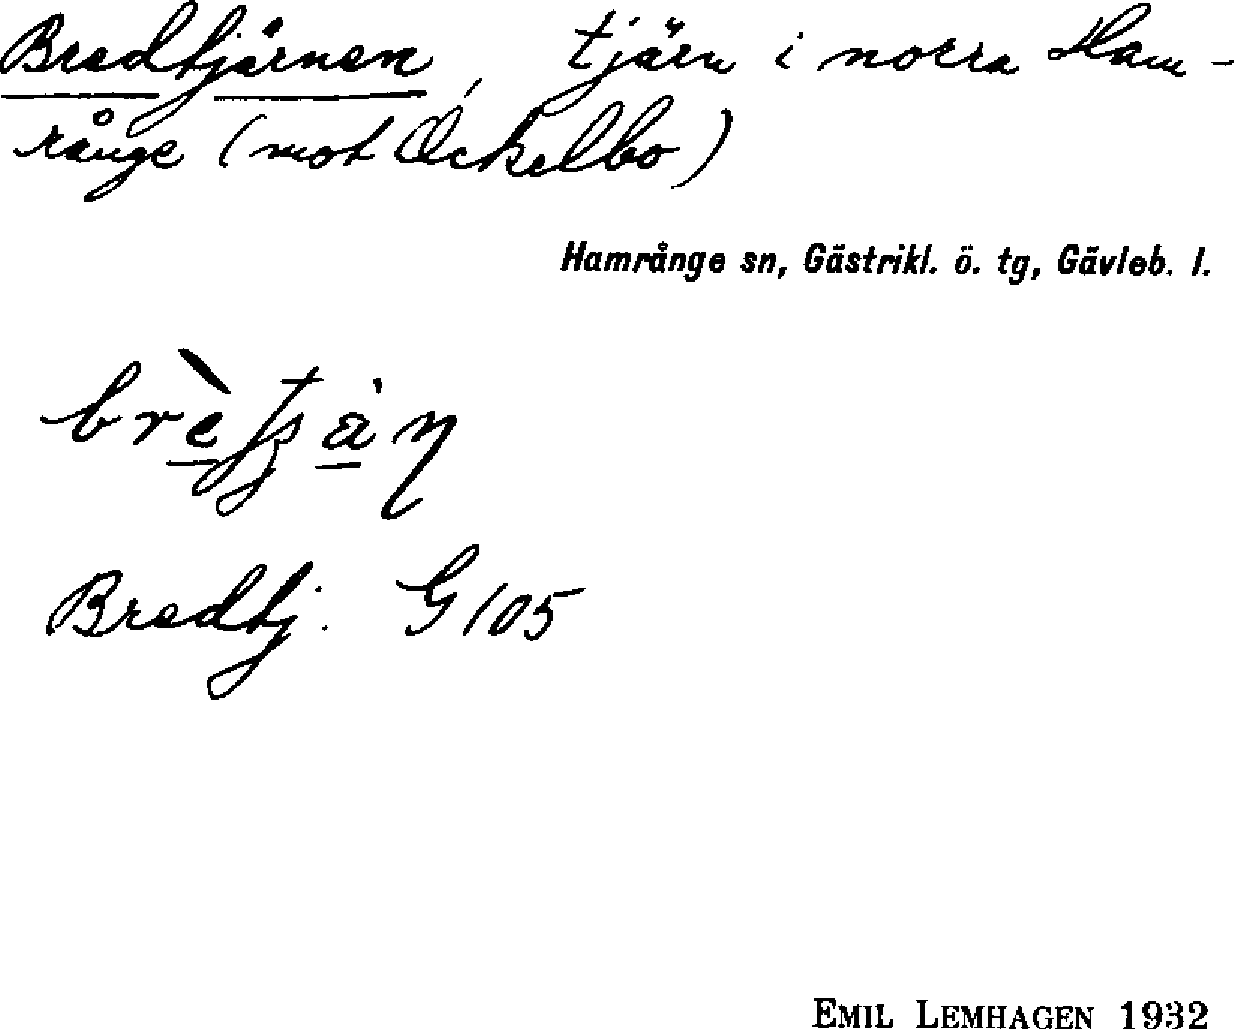 Bredtjärnen, tjärn i norra Ham-
rånge (mot Ockelbo)
Hamrånge sn, Gästrikl. ö. tg, Gävleb. l.
Bredtj. G 105
EMIL LEMHAGEN 1932